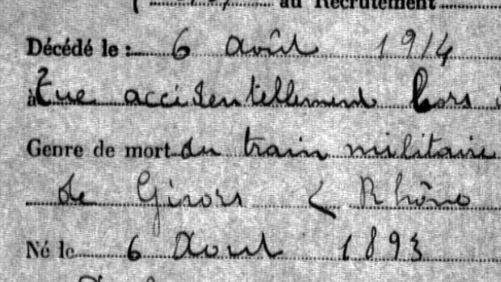 au Recrutement
Décédé le : 6 Août 1914
à Tué accidentellement hors
Genre de mort du train militaire
de Givors < Rhône
Né le 6 Aout 1893